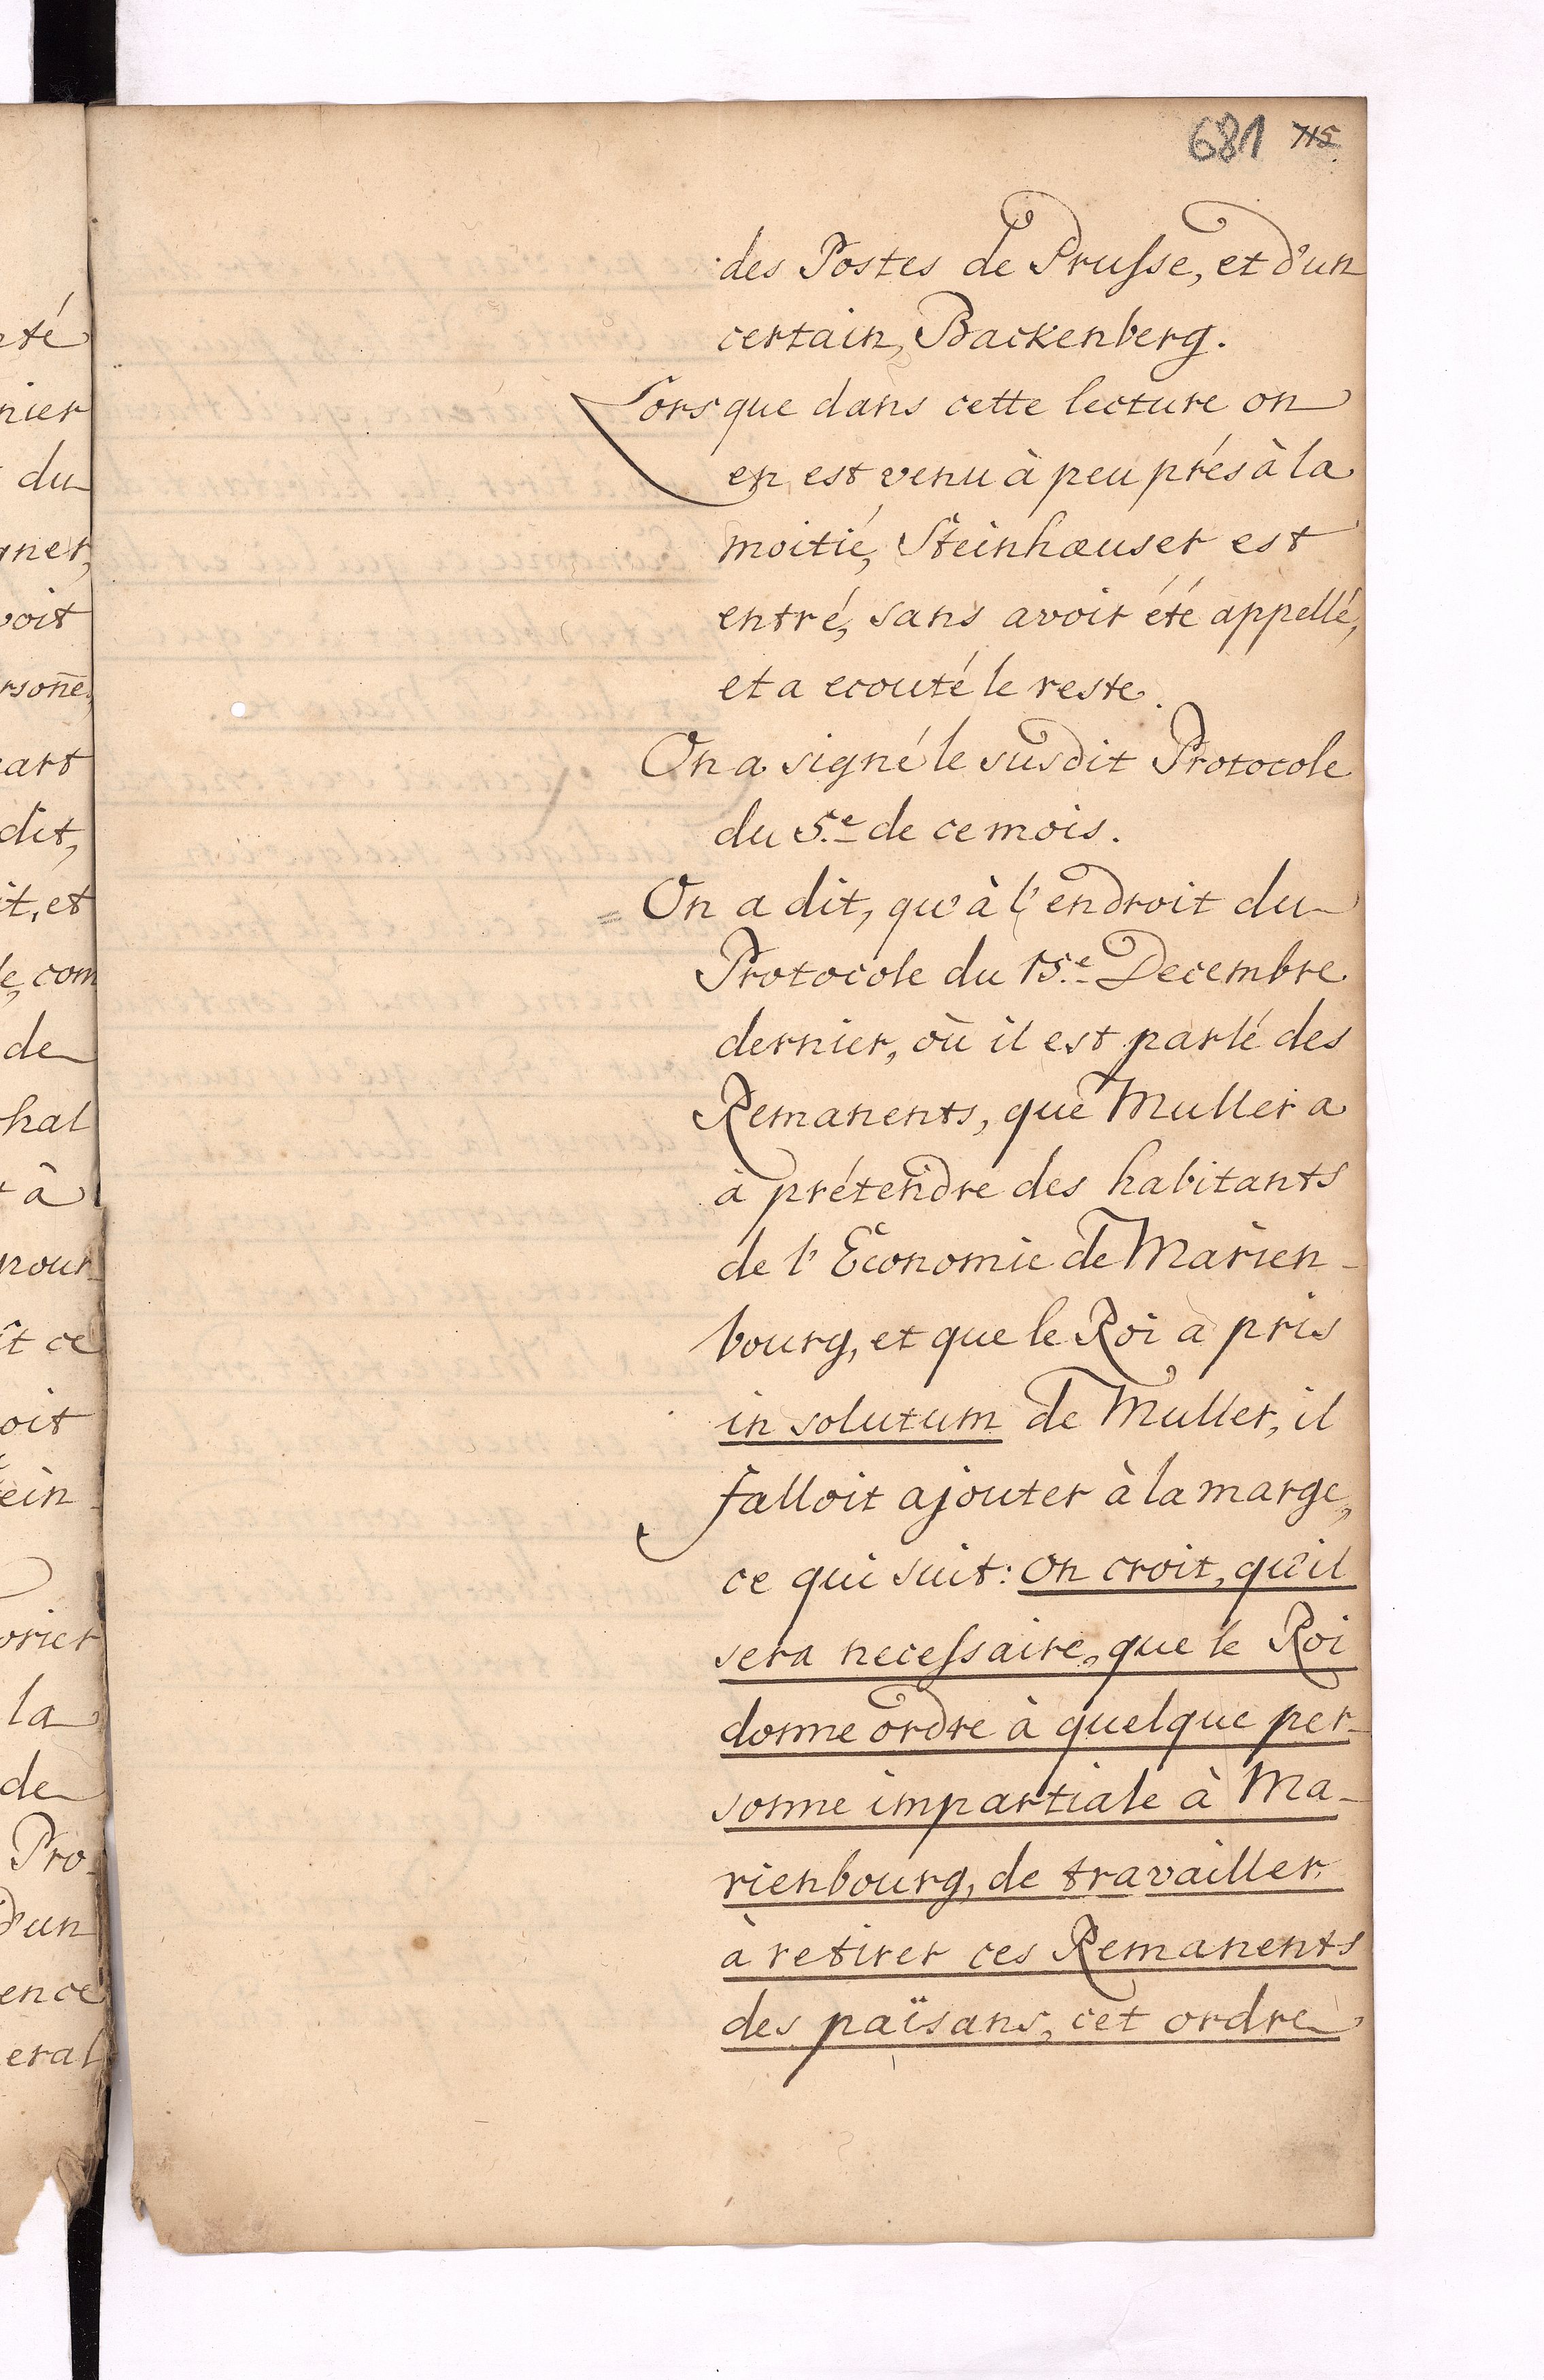 681 715
des Postes de Prusse, et d'un
certain, Backenberg.
Lorsque dans cette lecture on
en est venu à peu prés à la
moitié, Steinhæuser est
entré, sans avoir été appellé,
et a ecouté le reste.
On a signé le susdit Protocole
du 5.e de ce mois.
= On a dit, qu'à l'endroit du
Protocole du 15.e Decembre
dernier, où il est parlé des
Remanents, que Muller a
à prétendre des habitants
de l'Economie de Marien-
bourg, et que le Roi a pris
in solutum de Muller, il
falloit ajouter à la marge,
ce qui suit: On croit, qu'il
sera necessaire, que le Roi
donne ordre à quelque per-
sonne impartiale à Ma-
rienbourg, de travailler
à retirer ces Remanents
des païsans, cet ordre
nier
du
gner,
voit
rsoñe,
art
dit,
it, et
le, com
de
hal
à
pour
ît ce
oit
ein
orier
la
de
Pro-
d'un
ence
eral